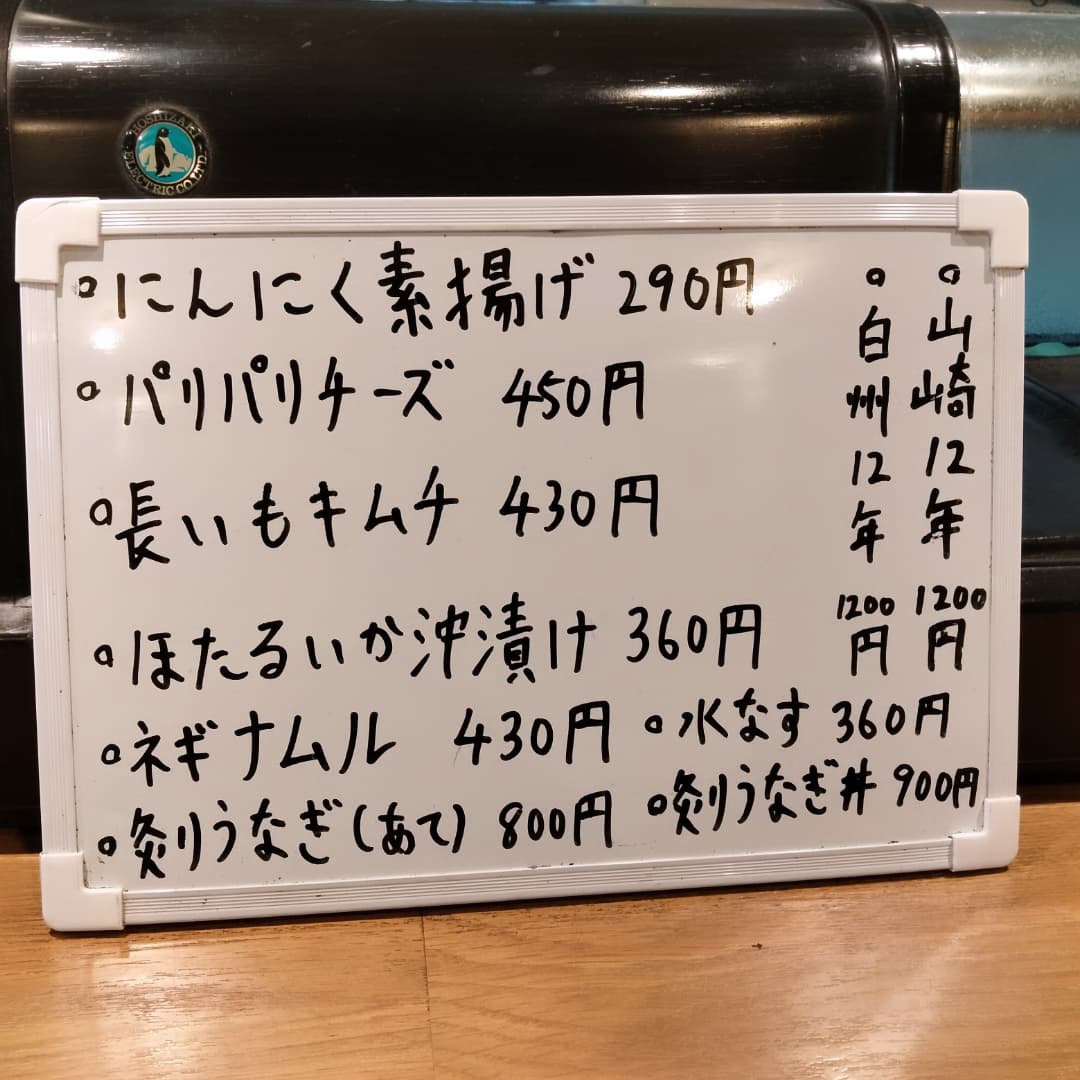 HOSHIZAKI
ELECTRIC CO.LTD.
。にんにく素揚げ 290円
。パリパリチーズ 450円
。長いもキムチ 430円
。ほたるいか沖漬け 360円
。ネギナムル 430円
。炙りうなぎ(あて) 800円
。山崎12年 1200円
。白州12年 1200円
。水なす 360円
。炙りうなぎ丼 900円